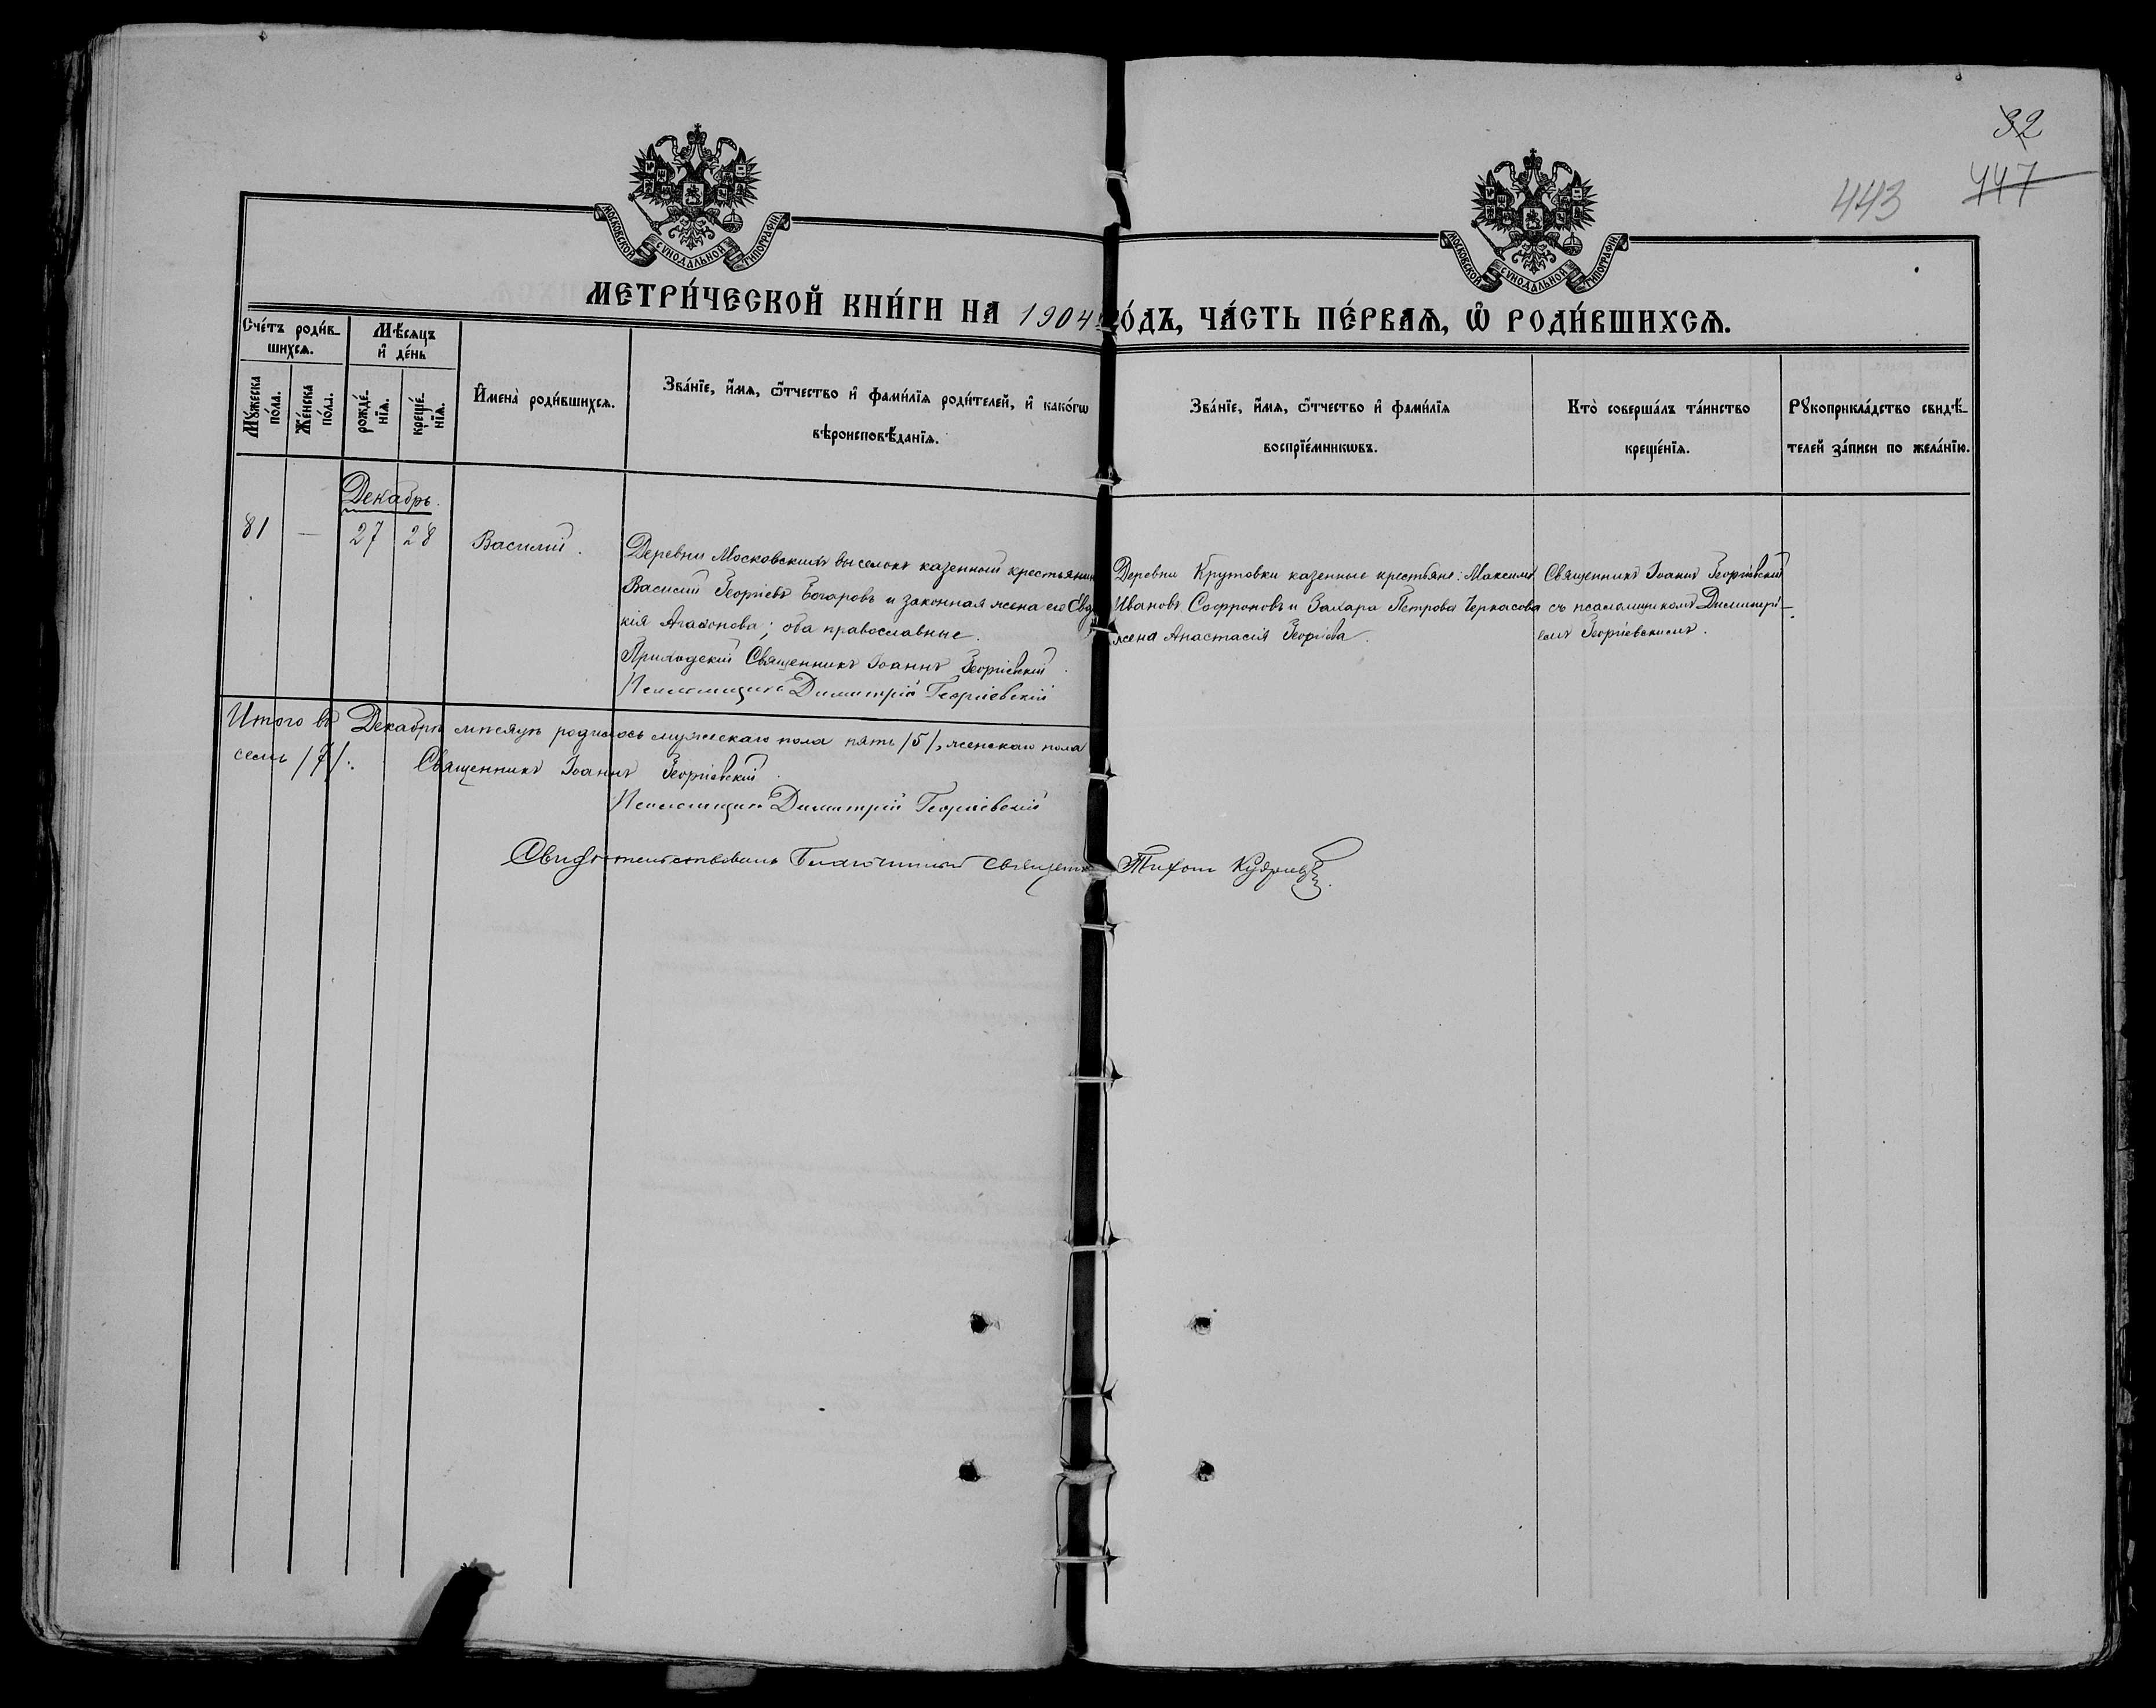 32
447
443
МОСКОВСКОЙ СѴНОДАЛЬНОЙ ТИПОГРАФІИ
МОСКОВСКОЙ СѴНОДАЛЬНОЙ ТИПОГРАФІИ
МЕТРИ́ЧЕСКОЙ КНИ́ГИ НА 1904 го́дъ, ЧА́СТЬ ПЕ́РВАѦ, Ѽ РОДИ́ВШИХСѦ.
Сче́тъ роди́в-
шихсѧ.
Мꙋ́жеска
по́ла.
Же́нска
по́ла.
Мѣ́сѧцъ
и҆ де́нь
рожде́-
нїѧ.
креще́-
нїѧ.
И҆мена̀ роди́вшихсѧ.
Зва́нїе, и҆́мѧ, ѻ҆́тчество и҆ фами́лїѧ роди́телей, и҆ како́гѡ
вѣроисповѣ́данїѧ.
Зва́нїе, и҆́мѧ, ѻ҆́тчество и҆ фами́лїѧ
воспрїе́мникѡвъ.
Кто̀ соверша́лъ та́инство
креще́нїѧ.
Рꙋкоприкла́дство свидѣ́-
телей за́писи по жела́нїю.
Декабрь.
81 — 27 28 Василій.
Деревни Московскихъ выселокъ казенный крестьянинъ
Василій Георгіевъ Бочаровъ и законная жена его Евдо-
кія Агафонова; оба православные.
Приходскій Священникъ Іоаннъ Георгіевскій
Псаломщикъ Димитрій Георгіевскій
Деревни Крутовки казенные крестьяне: Максимъ
Ивановъ Софроновъ и Захара Петрова Черкасова
жена Анастасія Георгіева
Священникъ Іоаннъ Георгіевскій
съ псаломщикомъ Димитрі-
емъ Георгіевскимъ.
Итого въ Декабрѣ мѣсяцѣ родилось мужескаго пола пять /5/, женскаго пола
семь /7/.
Священникъ Іоаннъ Георгіевскій
Псаломщикъ Димитрій Георгіевскій
Свидѣтельствовалъ Благочинный Священникъ Тихонъ